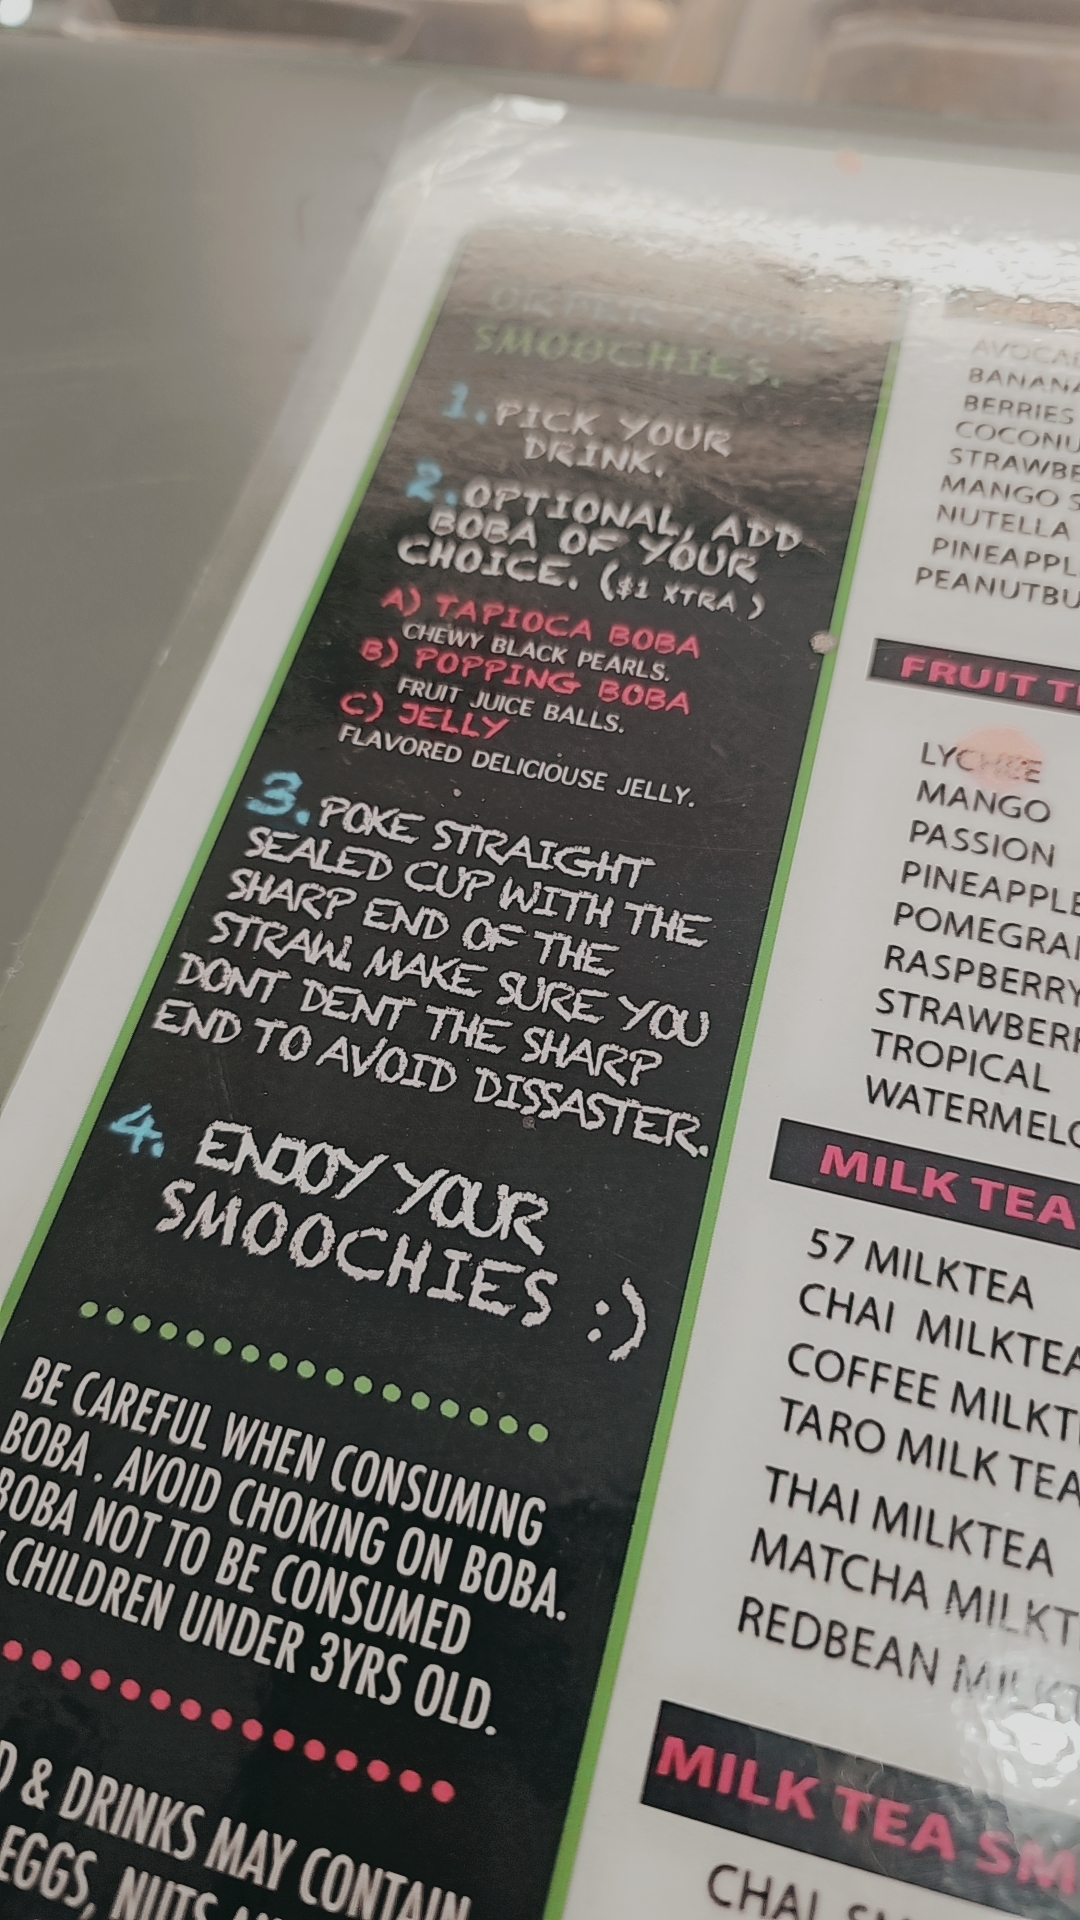 SMOOCHIES.
1. PICK YOUR
DRINK.
2. OPTIONAL, ADD
BOBA OF YOUR
CHOICE. ($1 XTRA )
A) TAPIOCA BOBA
CHEWY BLACK PEARLS.
B) POPPING BOBA
FRUIT JUICE BALLS.
C) JELLY
FLAVORED DELICIOUSE JELLY.
3. POKE STRAIGHT
SEALED CUP WITH THE
SHARP END OF THE
STRAW. MAKE SURE YOU
DONT DENT THE SHARP
END TO AVOID DISSASTER.
4. ENJOY YOUR
SMOOCHIES :)
BE CAREFUL WHEN CONSUMING
BOBA . AVOID CHOKING ON BOBA.
BOBA NOT TO BE CONSUMED
CHILDREN UNDER 3YRS OLD.
& DRINKS MAY CONTAIN
EGGS, NUTS
BANANA
BERRIES
MANGO
NUTELLA
FRUIT
LYCHEE
MANGO
PASSION
PINEAPPLE
RASPBERRY
TROPICAL
MILK TEA
57 MILKTEA
CHAI MILKTEA
COFFEE
TARO MILK TEA
THAI MILKTEA
MATCHA
REDBEAN
MILK TEA
CHAI